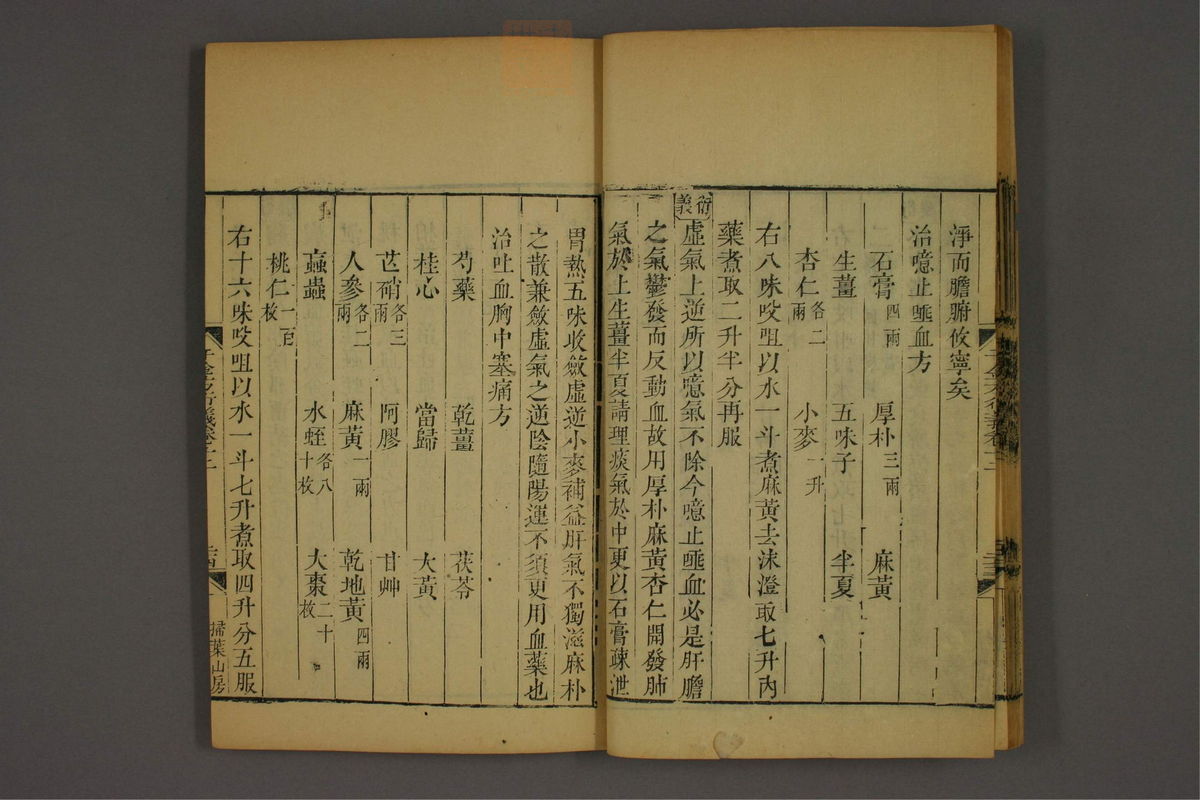 淨而膽腑攸寧矣
治噫止唾血方
石膏四兩 厚朴三兩 麻黃
生薑 五味子 半夏
杏仁各二兩 小麥一升
右八味㕮咀以水一斗煮麻黃去沫澄取七升內
藥煮取二升半分再服
衍義
虛氣上逆所以噫氣不除今噫止唾血必是肝膽
之氣鬱發而反動血故用厚朴麻黃杏仁開發肺
氣於上生薑半夏請理痰氣於中更以石膏疎泄
胃熱五味收斂虛逆小麥補益肝氣不獨滋麻朴
之散兼斂虛氣之逆陰隨陽運不須更用血藥也
治吐血胸中塞痛方
芍藥 乾薑 茯苓
桂心 當歸 大黃
芒硝各三兩 阿膠 甘艸
人參各二兩 麻黃一兩 乾地黃四兩
蝱蟲 水蛭各八十枚 大棗二十枚
桃仁一百枚
右十六味㕮咀以水一斗七升煮取四升分五服
千金方衍義卷十二
掃葉山房